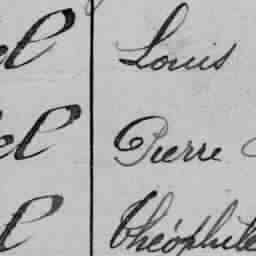 el Louis
el Pierre
el Théophile